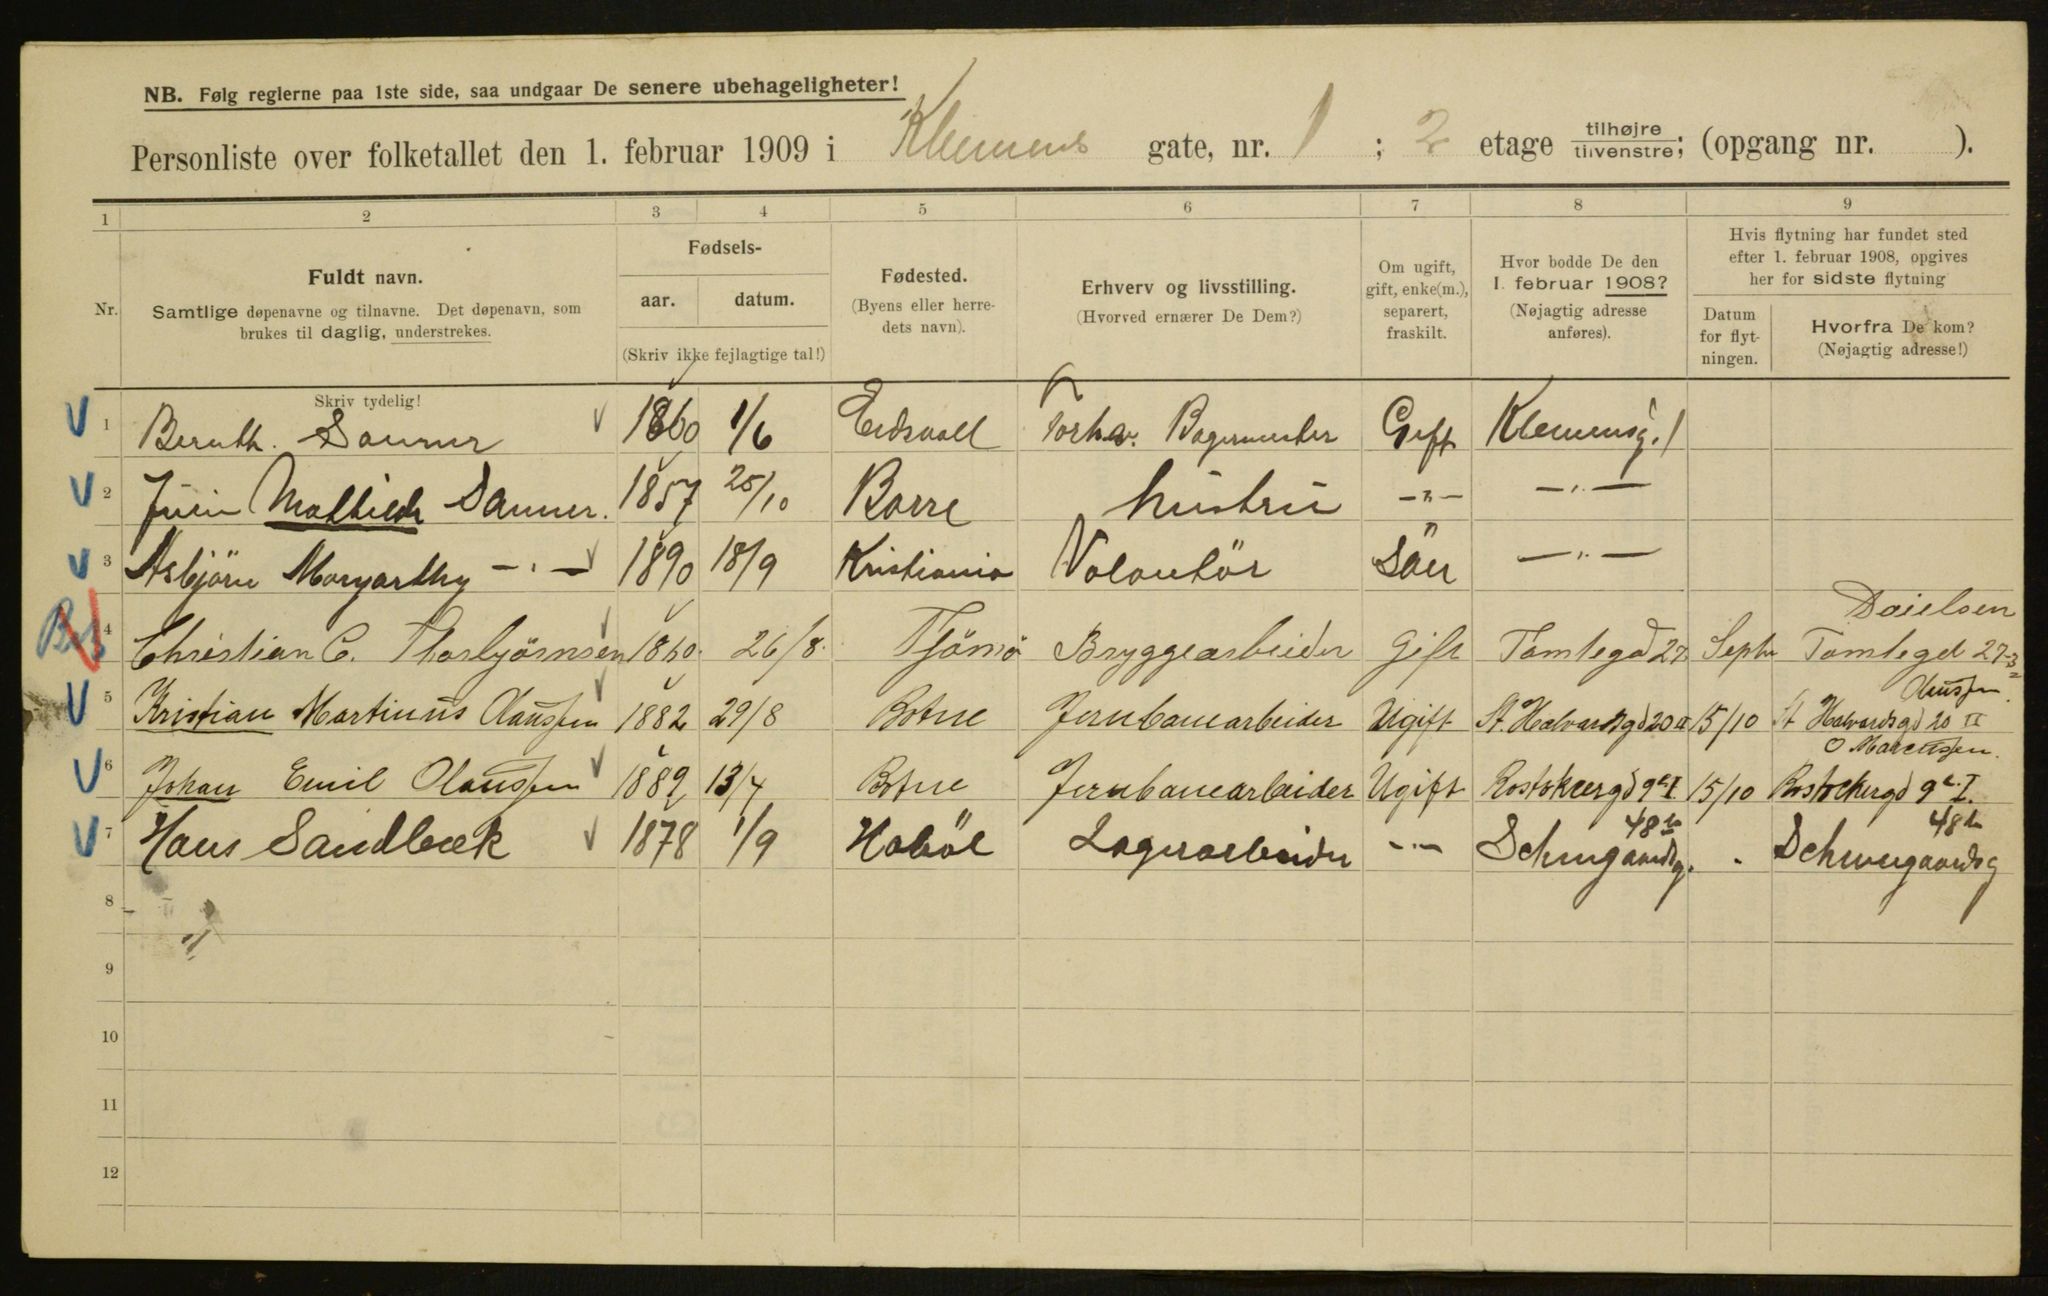 NB. Følg reglerne paa 1ste side, saa undgaar De senere ubehageligheter!
Personliste over folketallet den 1. februar 1909 i Klemens gate, nr. 1 ; 2 etage tilhøjre tilvenstre; (opgang nr. ).
1 2 3 4 5 6 7 8 9
Nr.
Fuldt navn.
Samtlige døpenavne og tilnavne. Det døpenavn, som
brukes til daglig, understrekes.
Skriv tydelig!
Fødsels-
aar. datum.
(Skriv ikke fejlagtige tal!)
Fødested.
(Byens eller herre-
dets navn).
Erhverv og livsstilling.
(Hvorved ernærer De Dem?)
Om ugift,
gift, enke(m.),
separert,
fraskilt.
Hvor bodde De den
1. februar 1908?
(Nøjagtig adresse
anføres).
Hvis flytning har fundet sted
efter 1. februar 1908, opgives
her for sidste flytning
Datum
for flyt-
ningen.
Hvorfra De kom?
(Nøjagtig adresse!)
1 Bernth. 1860 1/6 Eidsvoll Forhv. Bagermester Gift Klemensg. 1
2 Mathilde 1857 25/10 Borre hustru —"— —"—
3 Asbjörn —"— 1890 18/9 Kristiania Volontör Sön —"—
Danielsen
4 Christian C. Thorbjörnsen 1860. 26/8. Tjömö Bryggearbeider Gift Tomtegd 27 Septr Tomtegd 27-3
Olaussen
5 Kristian Martinus Claussen 1882 29/8 Botne Jernbanearbeider Ugift St. Halvardsgd 20 II 15/10 St Halvardsgd 20 II
O Marcussen.
6 Johan Emil Olaussen 1889 13/4 Botne Jernbanearbeider Ugift Rostokkergd 9a I. 15/10 Rostockergd 9a I.
48b 48b
7 Hans Sandbæk 1878 1/9 Hobøl Lagerarbeider —"— Schweigaardsg. " Schweigaardsg
8
9
10
11
12